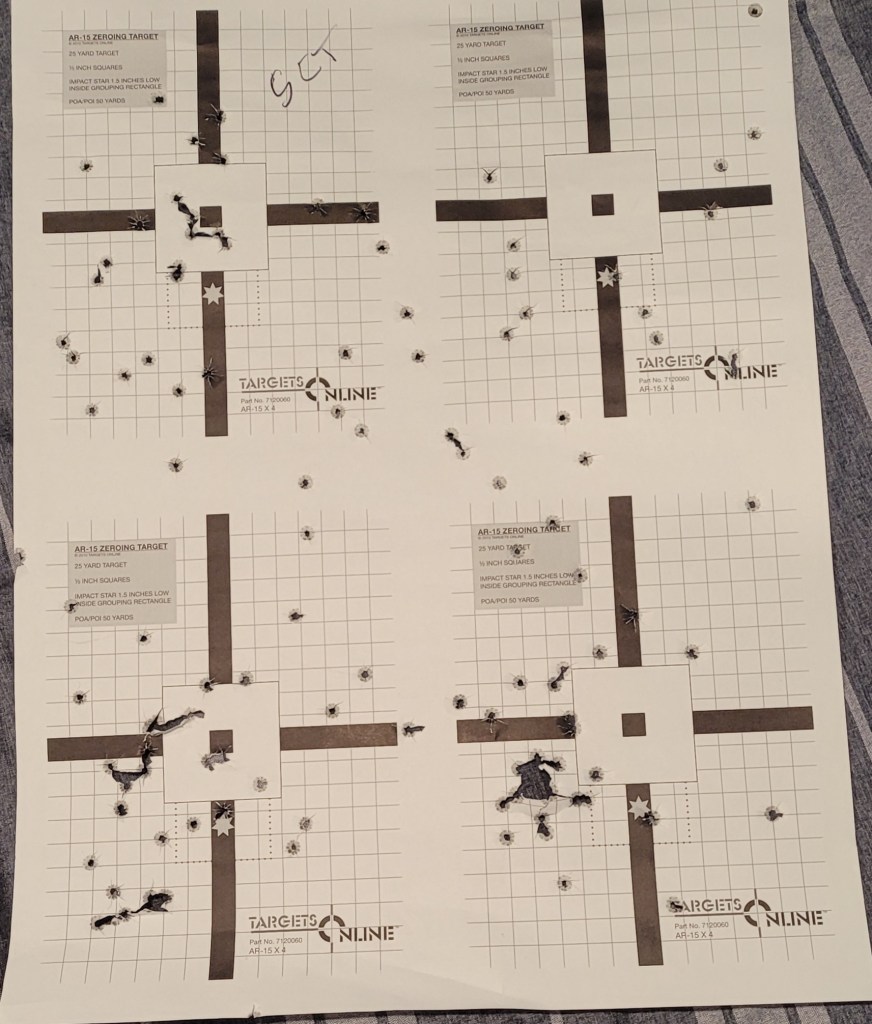 AR-15 ZEROING TARGET
25 YARD TARGET
½ INCH SQUARES
IMPACT STAR 1.5 INCHES LOW
INSIDE GROUPING RECTANGLE
POA/POI 50 YARDS
SET
TARGETS
ONLINE
Part No. 7120060
AR-15 X 4
AR-15 ZEROING TARGET
25 YARD TARGET
½ INCH SQUARES
IMPACT STAR 1.5 INCHES LOW
INSIDE GROUPING RECTANGLE
POA/POI 50 YARDS
TARGETS
ONLINE
Part No. 7120060
AR-15 X 4
AR-15 ZEROING TARGET
25 YARD TARGET
½ INCH SQUARES
IMPACT STAR 1.5 INCHES LOW
INSIDE GROUPING RECTANGLE
POA/POI 50 YARDS
TARGETS
ONLINE
Part No. 7120060
AR-15 X 4
AR-15 ZEROING TARGET
25 YARD TARGET
½ INCH SQUARES
IMPACT STAR 1.5 INCHES LOW
INSIDE GROUPING RECTANGLE
POA/POI 50 YARDS
TARGETS
ONLINE
Part No. 7120060
AR-15 X 4